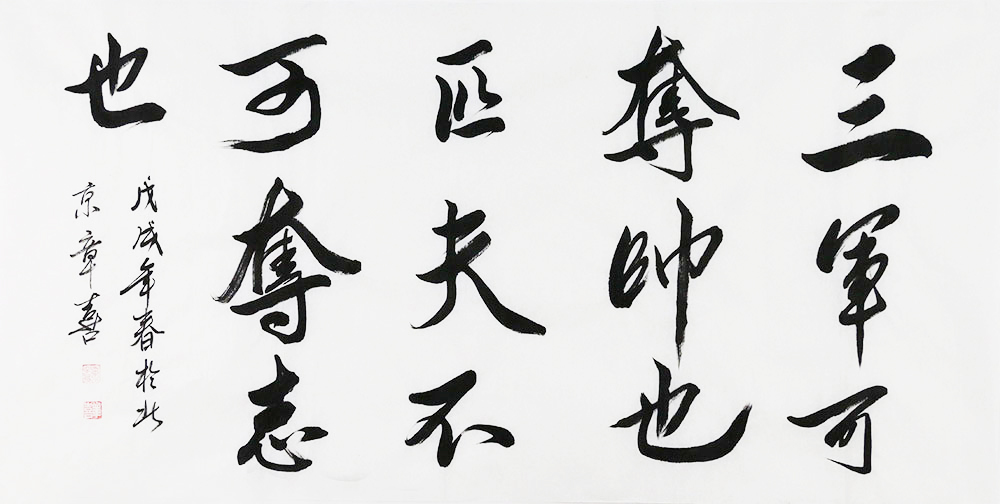 三軍可
奪帥也
匹夫不
可奪志
也
戊戌年春於北
京章喜